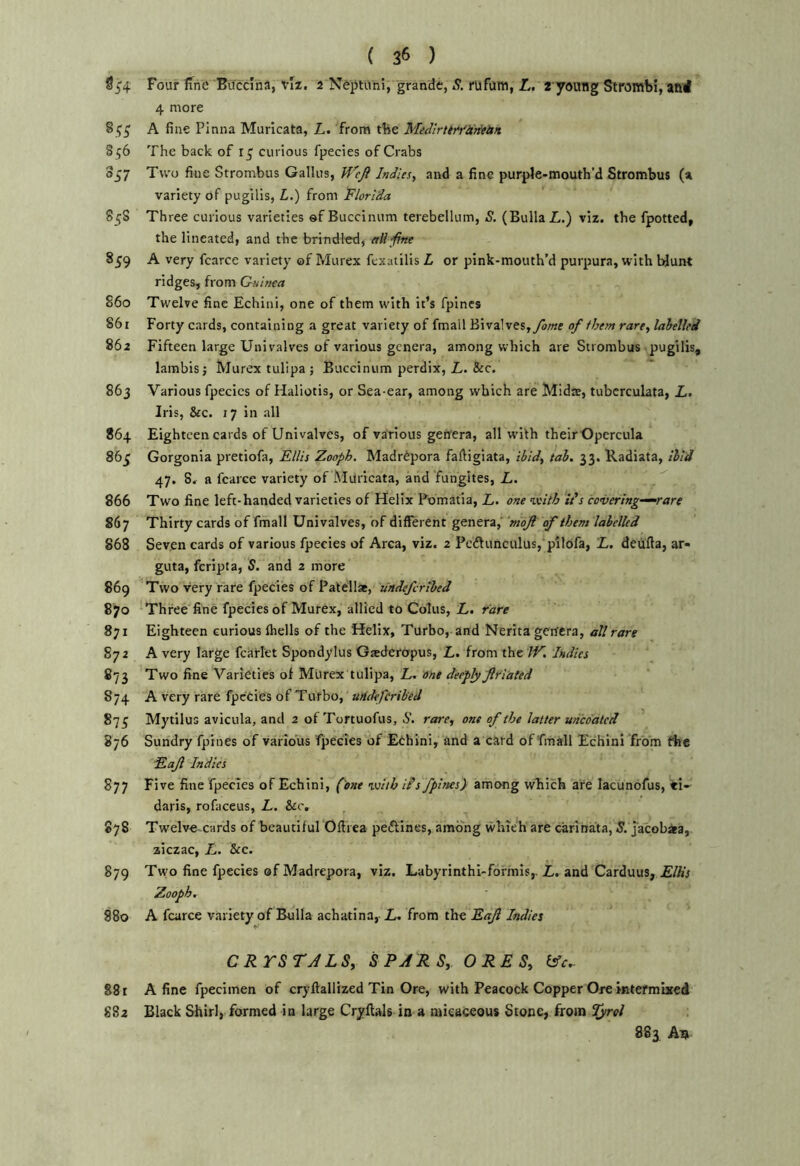 ( 36 )
854 Four fine Buccina, viz. 2 Neptuni, grande, S. rufum, L. 2 young Strombi, and
4 more
855 A fine Pinna Muricata, L. from the Mediterranean
856 The back of 15 curious ſpecies of Crabs
857 Two fine Strombus Gallus, Weſt Indies, and a fine purple-mouth'd Strombus (a
variety of pugilis, L.) from Florida
858 Three curious varieties of Buccinum terebellum, S. (Bulla L.) viz. the ſpotted,
the lineated, and the brindled, all fine
859 A very ſcarce variety of Murex ſexatilis L or pink-mouth'd purpura, with blunt
ridges, from Guinea
860 Twelve fine Echini, one of them with it's ſpines
861 Forty cards, containing a great variety of ſmall Bivalves, ſome of them rare, labelled
862 Fifteen large Univalves of various genera, among which are Strombus pugilis,
lambis; Murex tulipa; Buccinum perdix, L. &c.
863 Various ſpecies of Haliotis, or Sea-ear, among which are Midæ, tuberculata, L.
Iris, &c. 17 in all
864 Eighteen cards of Univalves, of various genera, all with their Opercula
865 Gorgonia pretioſa, Ellis Zooph. Madrepora faſtigiata, ibid, tab. 33. Radiata, ibid
47. 8. a ſcarce variety of Muricata, and fungites, L.
866 Two fine left-handed varieties of Helix Pomatia, L. one with it's covering—rare
867 Thirty cards of ſmall Univalves, of different genera, moſt of them labelled
868 Seven cards of various ſpecies of Arca, viz. 2 Pectunculus, piloſa, L. deuſta, ar-
guta, ſcripta, S. and 2 more
869 Two very rare ſpecies of Patellæ, undeſcribed
870 Three fine ſpecies of Murex, allied to Colus, L. rare
871 Eighteen curious ſhells of the Helix, Turbo, and Nerita genera, all rare
872 A very large ſcarlet Spondylus Gæderopus, L. from the W. Indies
873 Two fine Varieties of Murex tulipa, L. one deeply ſtriated
874 A very rare ſpecies of Turbo, undeſcribed
875 Mytilus avicula, and 2 of Tortuoſus, S. rare, one of the latter uncoated
876 Sundry ſpines of various ſpecies of Echini, and a card of ſmall Echini from the
Eaſt Indies
877 Five fine ſpecies of Echini, (one with it's ſpines) among which are lacunoſus, ci-
daris, roſaceus, L. &c.
878 Twelve cards of beautiful Oſtrea pectines, among which are carinata, S. jacobæa,
ziczac, L. &c.
879 Two fine ſpecies of Madrepora, viz. Labyrinthi-formis, L. and Carduus, Ellis
Zooph.
880 A ſcarce variety of Bulla achatina, L. from the Eaſt Indies
CRYSTALS, SPARS, ORES, &c.
881 A fine ſpecimen of cryſtallized Tin Ore, with Peacock Copper Ore intermixed
882 Black Shirl, formed in large Cryſtals in a micaceous Stone, from Tyrol
883 An